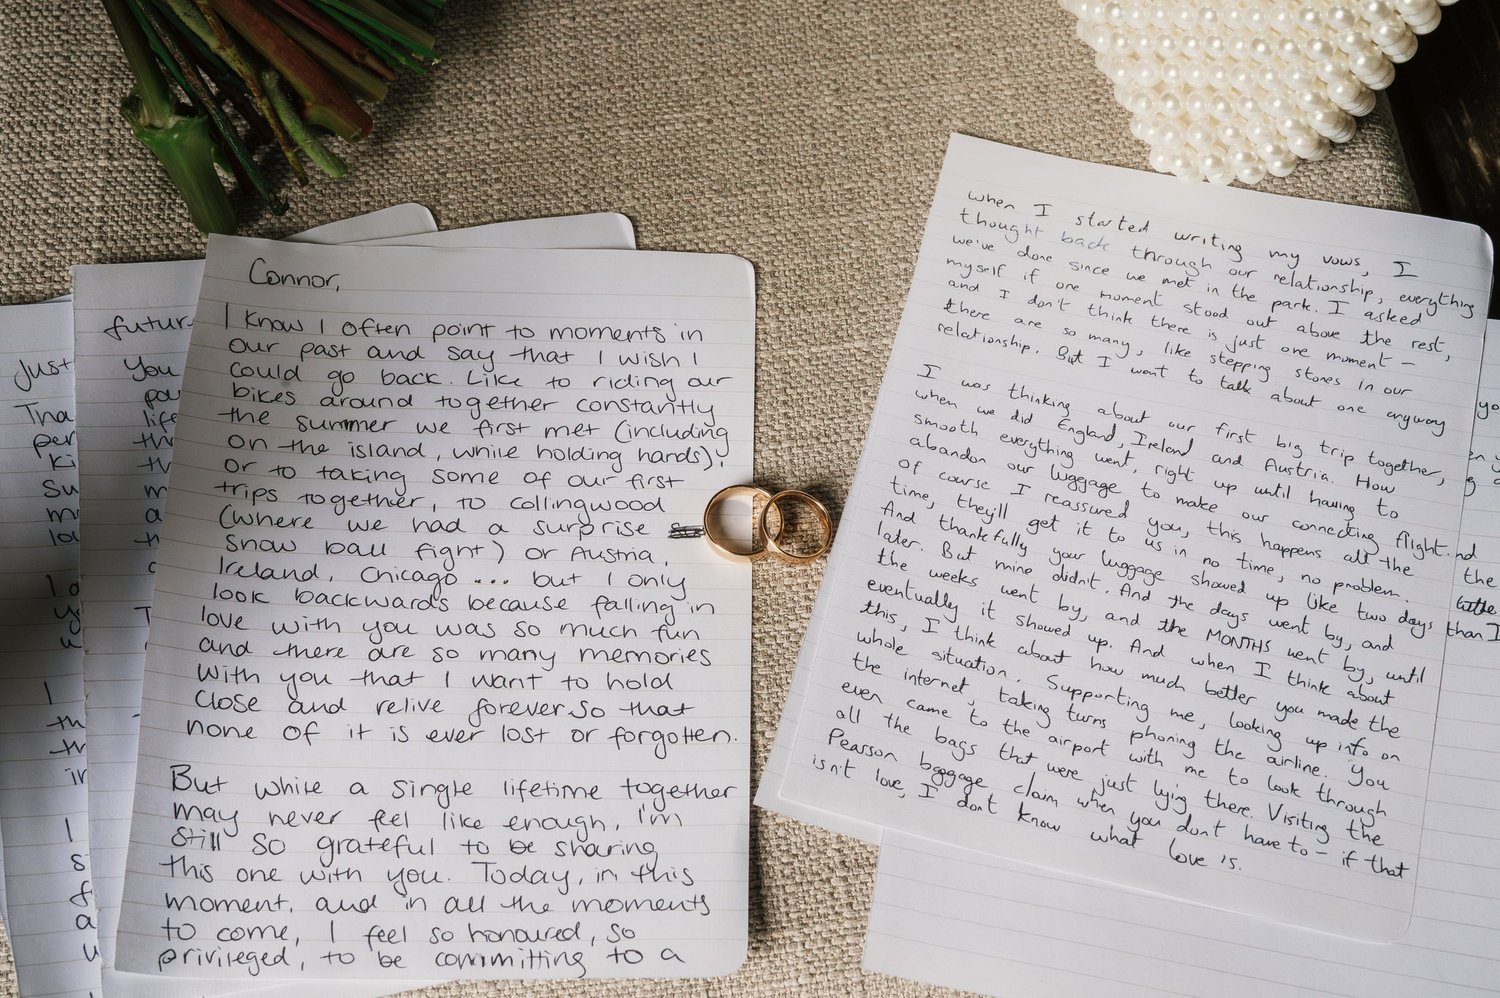 Connor,
I know I often point to moments in
our past and say that I wish I
could go back. Like to riding our
bikes around together constantly
the summer we first met (including
on the island, while holding hands),
or to taking some of our first
trips together, to Collingwood
(where we had a surprise
snow ball fight) or Austria,
Ireland, Chicago ... but I only
look backwards because falling in
love with you was so much fun
and there are so many memories
with you that I want to hold
close and relive forever so that
none of it is ever lost or forgotten.
But while a single lifetime together
may never feel like enough, I'm
still so grateful to be sharing
this one with you. Today, in this
moment, and in all the moments
to come, I feel so honoured, so
privileged, to be committing to a
when I started writing my vows, I
thought back through our relationship, everything
we've done since we met in the park. I asked
myself if one moment stood out above the rest,
and I don't think there is just one moment –
there are so many, like stepping stones in our
relationship. But I want to talk about one anyway
I was thinking about our first big trip together,
when we did England, Ireland and Austria. How
smooth everything went, right up until having to
abandon our luggage to make our connecting flight.
of course I reassured you, this happens all the
time, they'll get it to us in no time, no problem.
And thankfully your luggage showed up like two days
later. But mine didn't. And the days went by, and
the weeks went by, and the MONTHS went by, until
eventually it showed up. And when I think about
this, I think about how much better you made the
whole situation. Supporting me, looking up info on
the internet, taking turns phoning the airline. You
even came to the airport with me to look through
all the bags that were just lying there. Visiting the
Pearson baggage claim when you don't have to – if that
isn't love, I don't know what love is.
futur
You
life
Just
I
I
the
than I